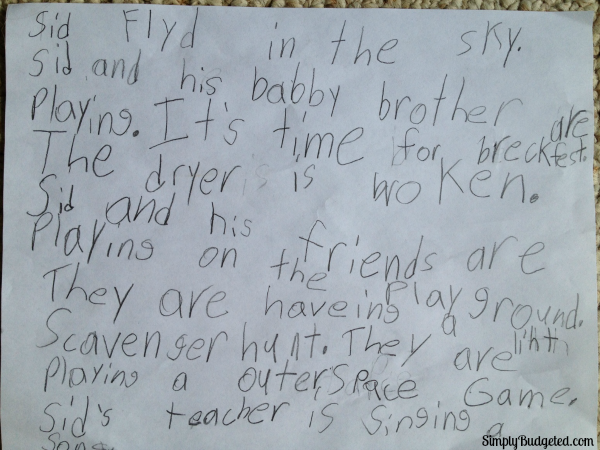 Sid Flyd in the sky.
Sid and his babby brother are
Playing. It's time for breckfest.
The dryer is is woken.
Sid and his friends are
Playing on the Playground.
They are haveing a
Scavenger hunt. They are
Playing a outerspace Game.
Sid's teacher is singing a
Song.
SimplyBudgeted.com